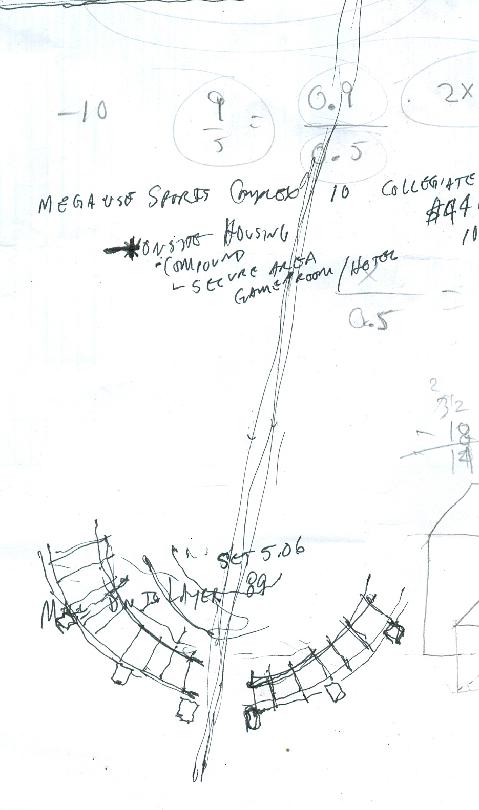 -10 9/5 = 0.9/0.5 2x
MEGAUSE SPORTS COMPLEX 10 COLLEGIATE
ONSITE HOUSING
• COMPOUND
- SECURE AREA
GAMEROOM / HOTEL
X/0.5 =
2
32
- 18
14
SET 5.06
LAYER 89